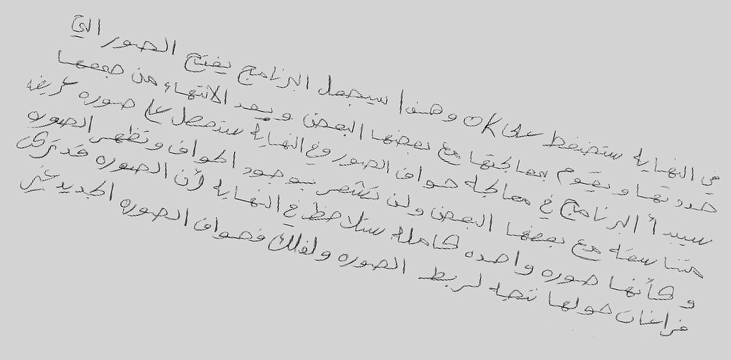 في النهاية ستضغط على OK وهذا سيجعل البرنامج يفتح الصور التي
حددتها ويقوم بمعالجتها مع بعضها البعض وبعد الانتهاء من جمعها
سيبدأ البرنامج في معالجة حواف الصور وفي النهاية ستحصل على صوره عريضه
متناسقه مع بعضها البعض ولن تشعر بوجود الحواف وتظهر الصوره
وكأنها صوره واحده كامله ستلاحظ في النهاية لأن الصوره قد ترى
فراغات حولها نتيجه لربط الصوره ولذلك فحواف الصوره الجديد غير